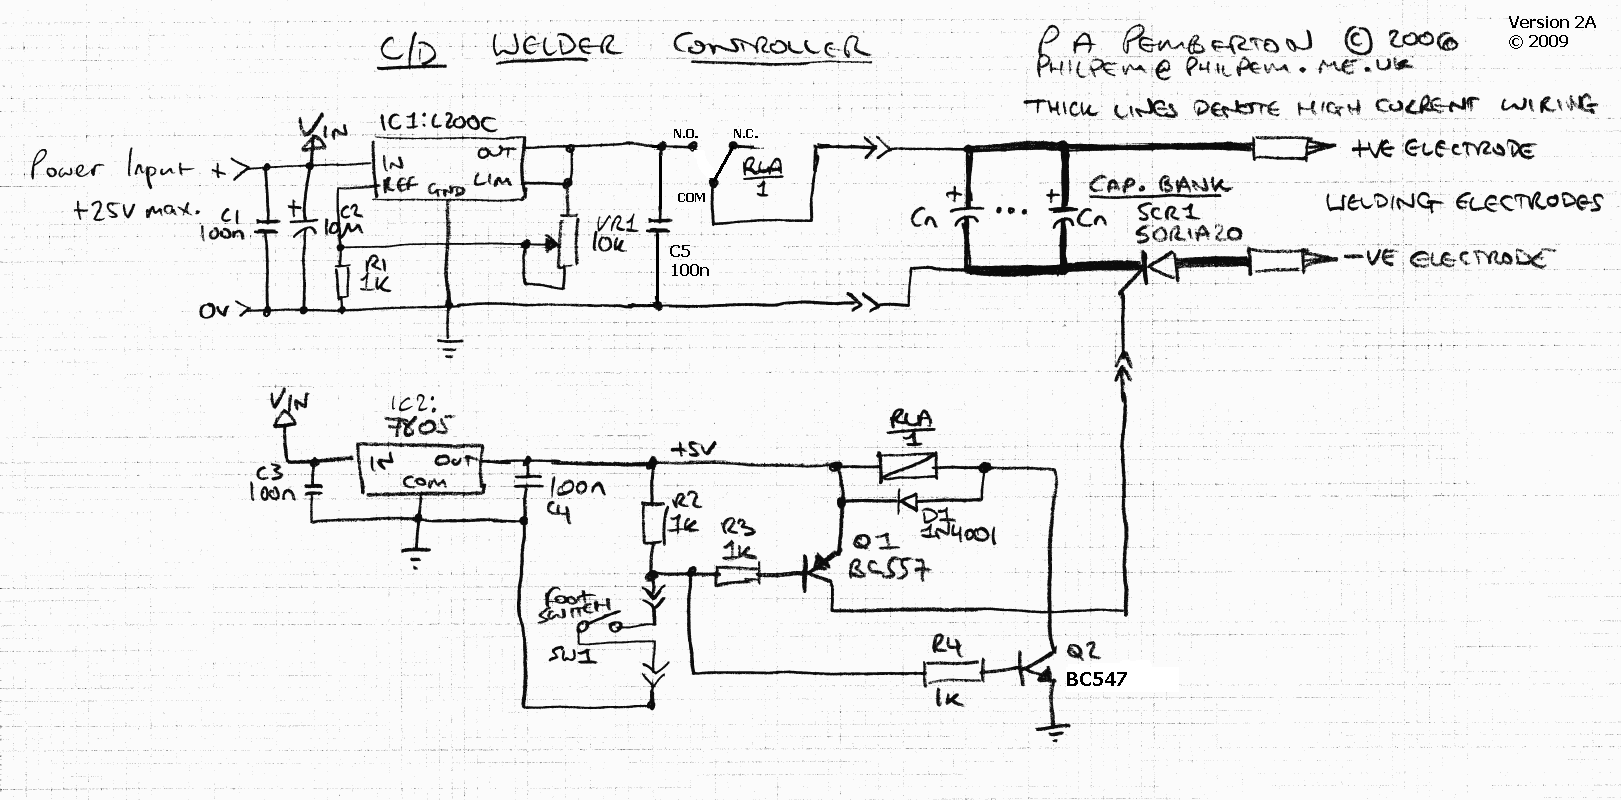 C/D WELDER CONTROLLER
P A PEMBERTON © 2006
PHILPEM@PHILPEM.ME.UK
Version 2A
© 2009
THICK LINES DENOTE HIGH CURRENT WIRING
Power Input +
+25V max.
VIN
IC1:L200C
IN
REF
GND
OUT
LIM
C1
100n
+
C2
10µ
R1
1K
0V
VR1
10K
C5
100n
N.O.
N.C.
COM
RLA
1
+
Cn
...
+
Cn
CAP. BANK
SCR1
50RIA20
+VE ELECTRODE
WELDING ELECTRODES
-VE ELECTRODE
VIN
IC2:
7805
IN
OUT
COM
C3
100n
100n
C4
+5V
R2
1K
R3
1K
FOOT
SWITCH
SW1
RLA
1
D1
1N4001
Q1
BC557
R4
1K
Q2
BC547